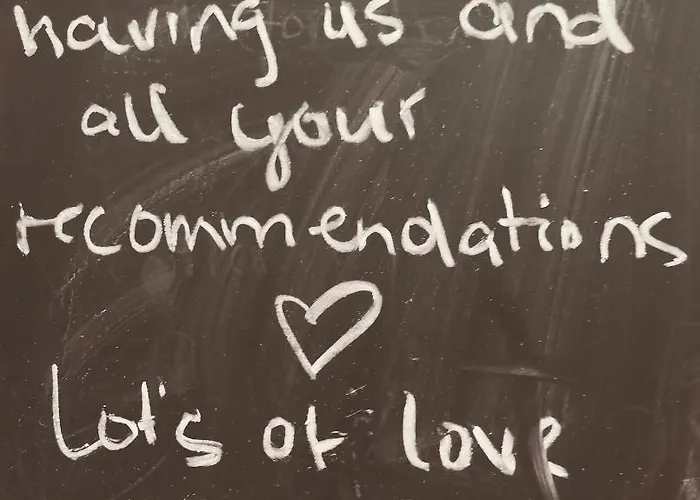 having us and
all your
recommendations
Lot's of love